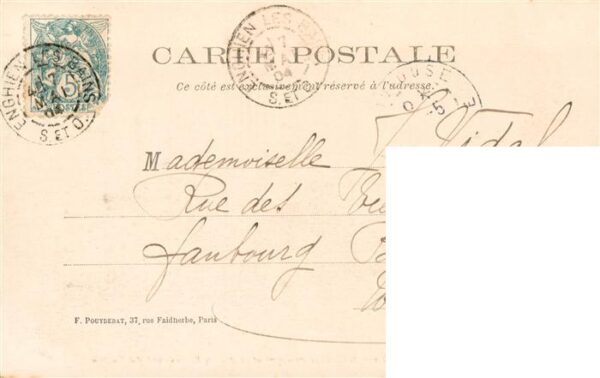 CARTE POSTALE
Ce côté est exclusivement réservé à l'adresse.
ENGHIEN LES BAINS
S. ET O.
ENGHIEN LES BAINS
04
S. ET
Vidal
Mademoiselle
Rue des
faubourg
F. POUYDEBAT, 37, rue Faidherbe, Paris